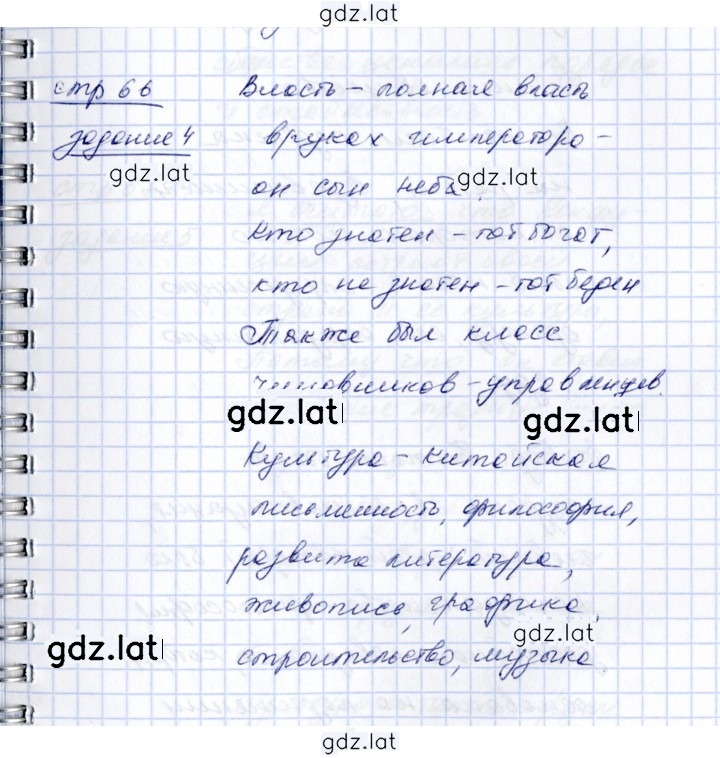 gdz.lat
стр 66 Власть – полная власть
задание 4 в руках императора –
gdz.lat
он сын неба. gdz.lat
Кто знатен – тот богат,
кто не знатен – тот беден
Также был класс
чиновников – управленцев.
gdz.lat gdz.lat
Культура – китайская
письменность, философия,
развита литература,
живопись, графика,
gdz.lat gdz.lat
строительство, музыка.
gdz.lat